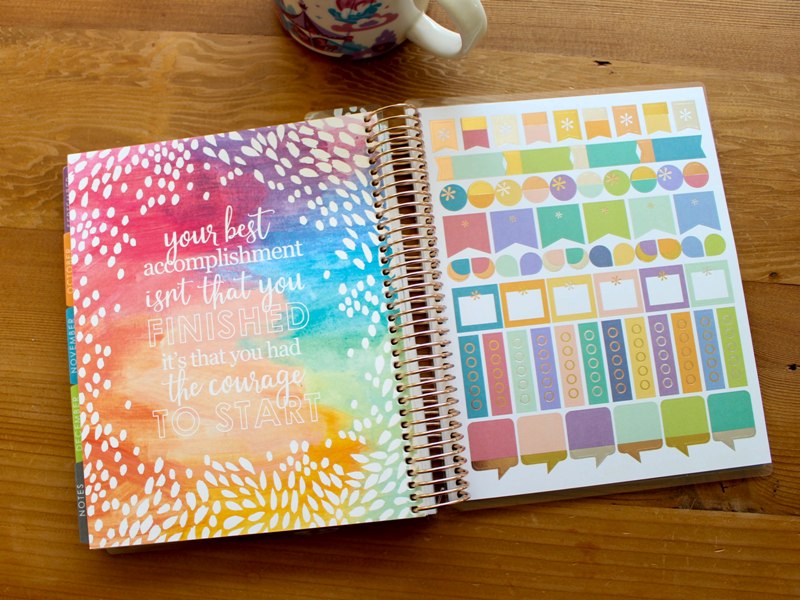 your best
accomplishment
isnt that you
FINISHED
it's that you had
the courage
TO START
OCTOBER
NOVEMBER
DECEMBER
NOTES